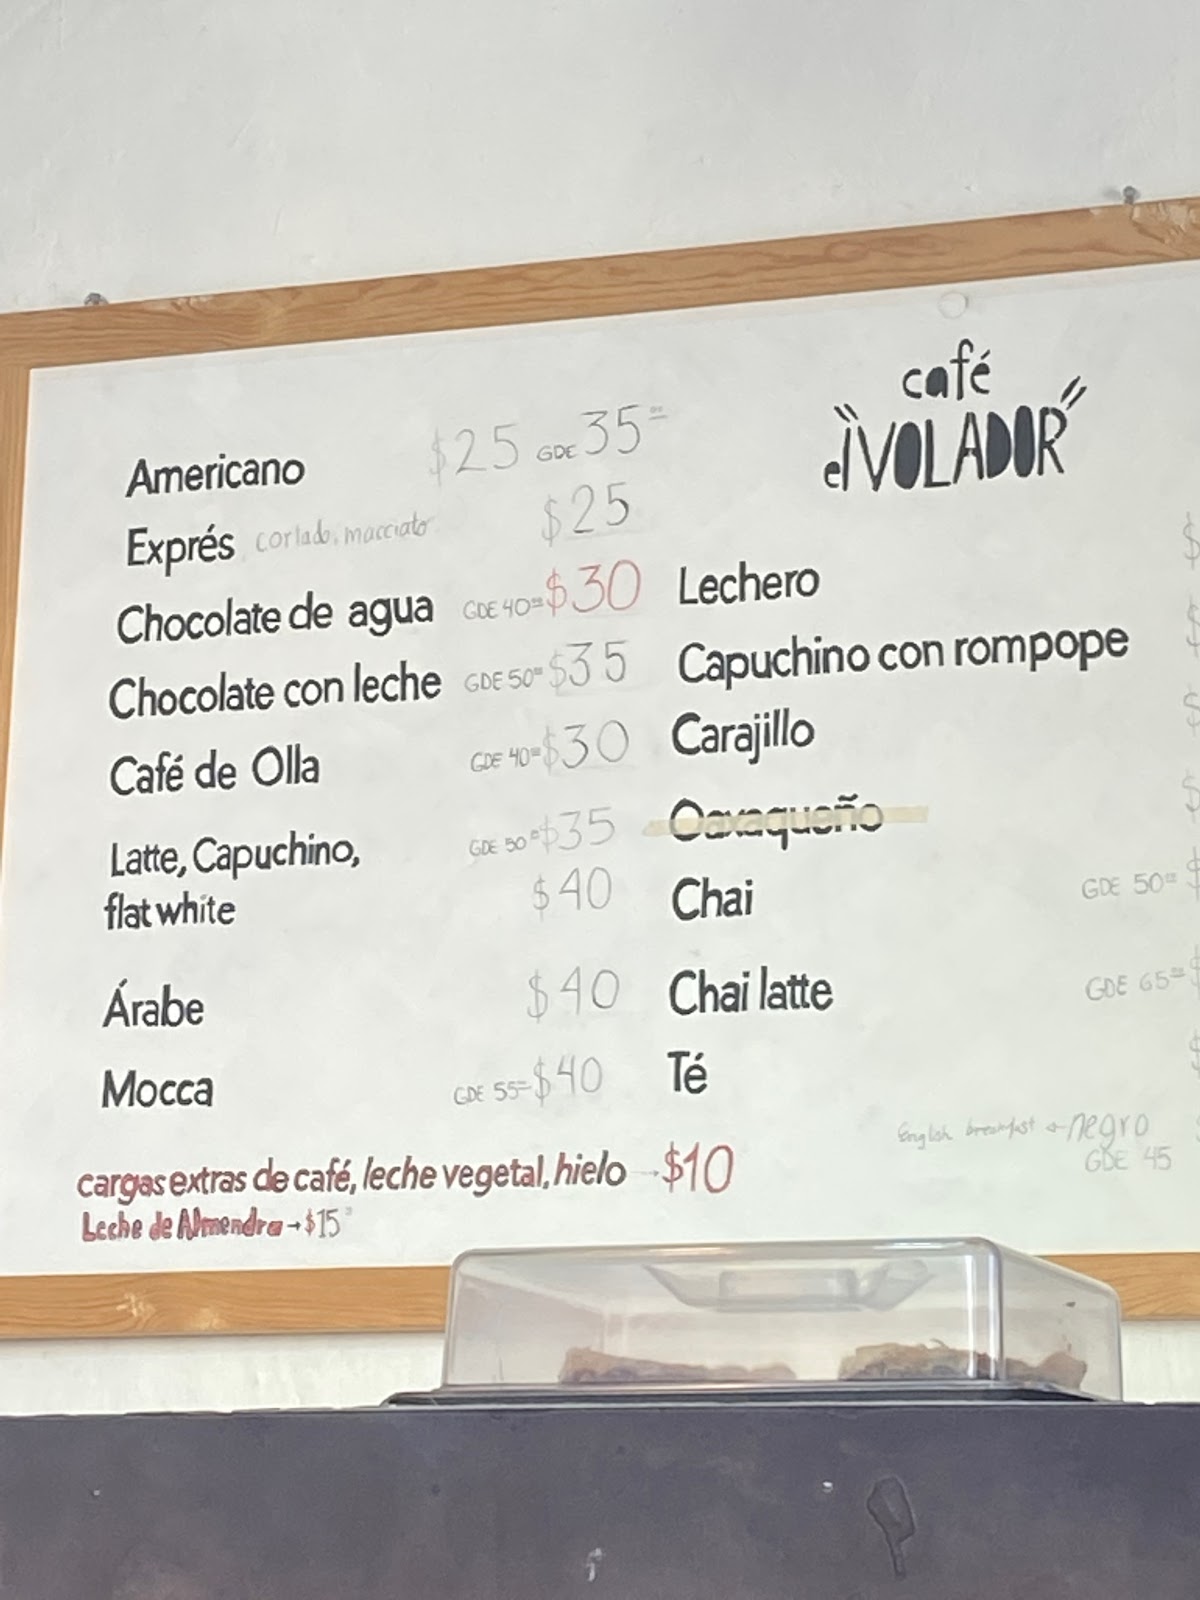 café
el VOLADOR
Americano $25 GDE 35
Exprés cortado, macciato $25
Chocolate de agua GDE 40= $30
Chocolate con leche GDE 50= $35
Café de Olla GDE 40= $30
Latte, Capuchino, GDE 50= $35
flat white $40
Árabe $40
Mocca GDE 55= $40
Lechero $
Capuchino con rompope $
Carajillo $
Oaxaqueño $
Chai GDE 50= $
Chai latte GDE 65= $
Té $
English breakfast ← negro
GDE 45
cargas extras de café, leche vegetal, hielo → $10
Leche de Almendra → $15